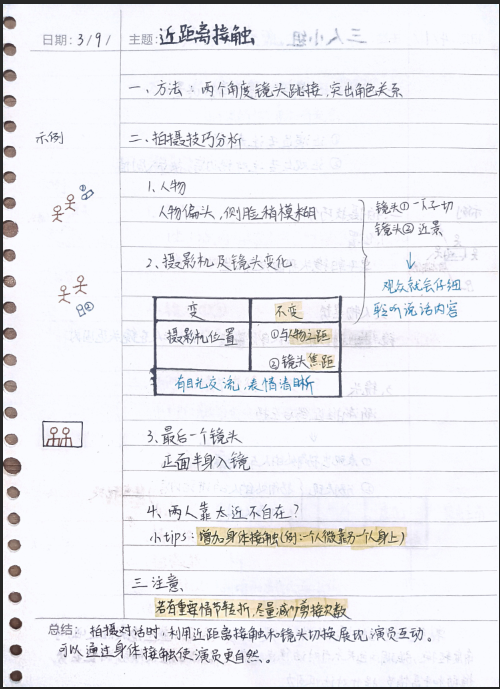 日期: 3/9/ 主题: 近距离接触
一、方法：两个角度镜头跳接，突出角色关系
示例
二、拍摄技巧分析
1、人物
人物偏头，侧脸稍模糊
镜头① 一人一切
镜头② 近景
观众就会仔细
聆听说话内容
2、摄影机及镜头变化
变 不变
摄影机位置 ①与人物之距
②镜头焦距
有目光交流，表情清晰
①
②
3、最后一个镜头
正面半身入镜
4、两人靠太近不自在？
小tips：增加身体接触(例：一个人微靠另一个人身上)
三、注意、
若有重要情节转折，尽量减少剪接次数
总结： 拍摄对话时，利用近距离接触和镜头切换展现演员互动。
可以通过身体接触使演员更自然。